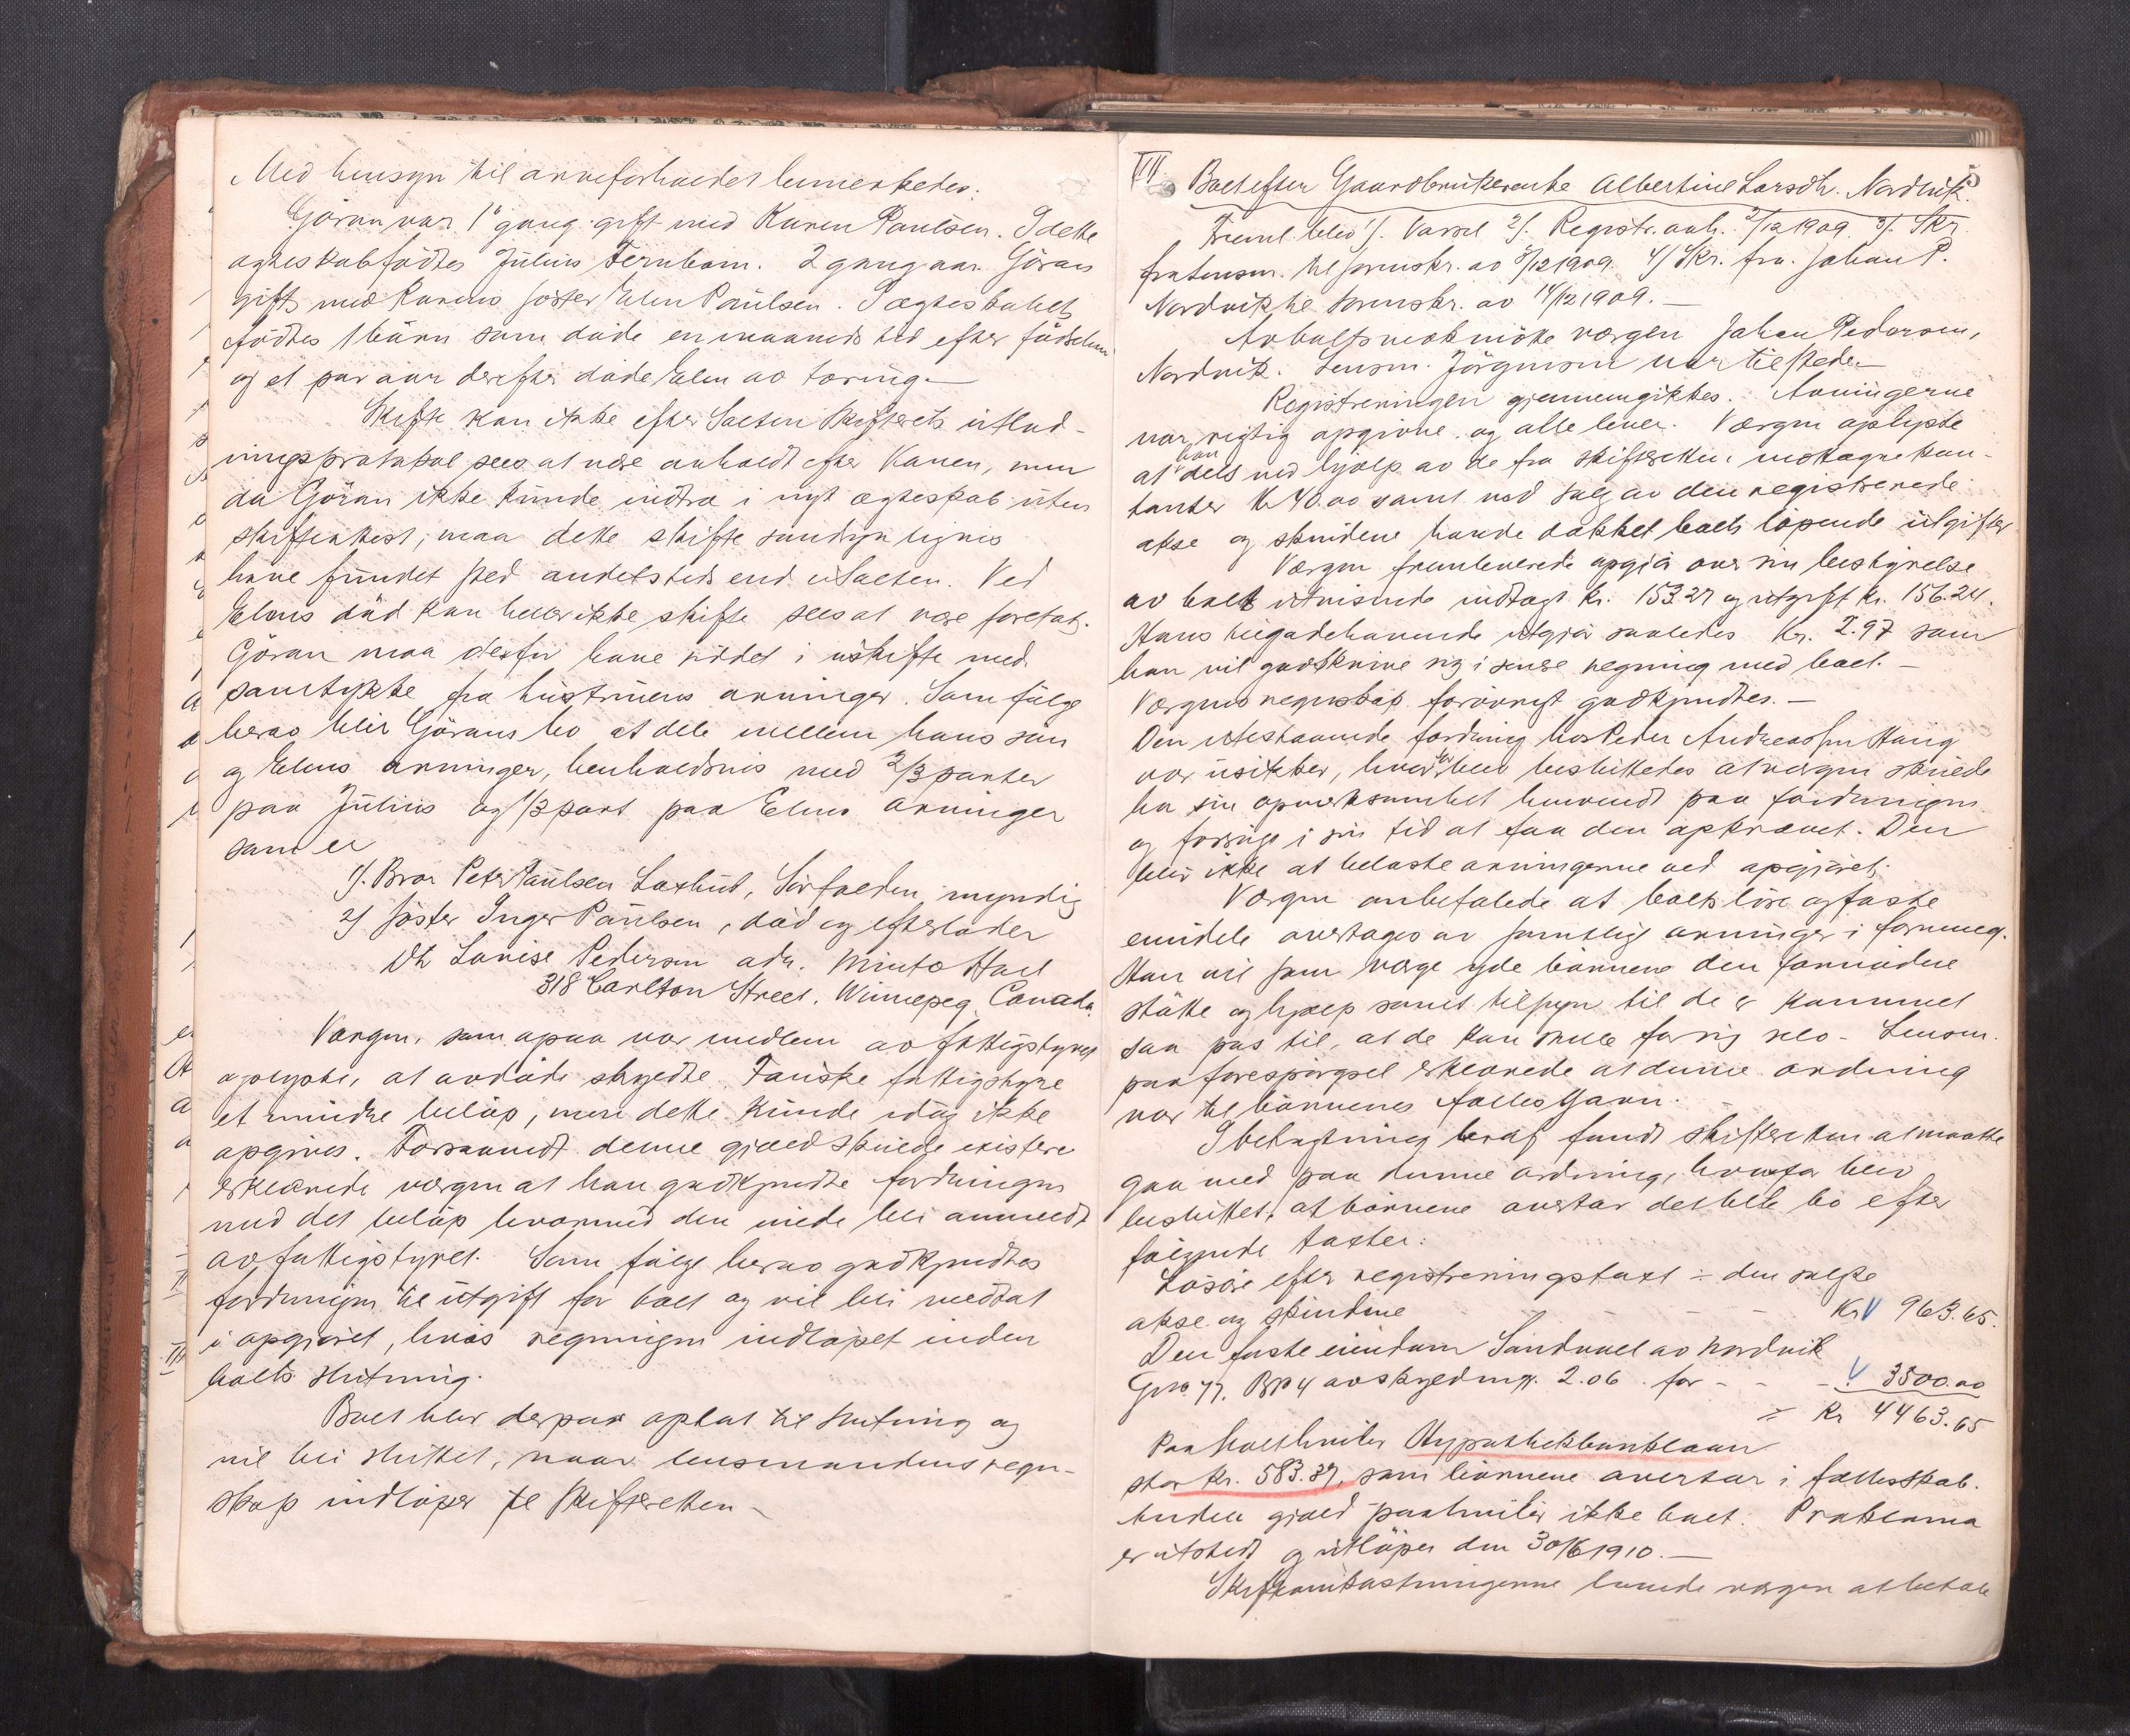 Med hensyn til arveforholdet bemerkedes:
Göran var 1ste gang gift med Karen Paulsen. I dette
egteskab födtes Julius Fernbom. 2 gang var Göran
gift med Karens söster Elen Paulsen. I egteskabet
födtes 1 barn som döde en maaneds tid efter födselen
og et par aar derefter döde Elen av tæring. —
Skifte kan ikke efter Salten Skifterets utlod-
ningsprotokol sees at være avholdt efter Karen, men
da Göran ikke kunde indtræ i nyt egteskab uten
skifteattest, maa dette skifte sandsynligvis
have fundet sted andetsteds end i Salten. Ved
Elens död kan heller ikke skifte sees at være foretat.
Göran maa derfor have siddet i uskifte med
samtykke fra hustruens arvinger. Som fölge
herav blir Görans bo at dele mellem hans sön
og Elens arvinger, henholdsvis med 2/3 parter
paa Julius og 1/3 part paa Elens arvinger
som er
1/. Bror Peter Paulsen Laxhut, Sörfolden, myndig
2/ Söster Inger Paulsen, död og efterlader
Dtr Lovise Pedersen adr. Minto Hall
318 Carlton Street. Winnepeg Canada.
Værgen, som ogsaa var medlem av fattigstyret
oplyste, at avdöde skyldte Fauske fattigstyre
et mindre belöp, men dette kunde idag ikke
opgives. Forsaavidt denne gjæld skulde existere
erklærede værgen at han godkjendte fordringen
med det belöp hvormed den maatte bli anmeldt
av fattigstyret. Som fölge herav godkjendtes
fordringen til utgift for boet og vil bli medtat
i opgjöret, hvis regningen indlöpet inden
boets slutning.
Boet blev derpaa optat til slutning og
vil bli sluttet, naar lensmandens regn-
skap indlöper til Skifteretten —
VII Boet efter Gaardbrukerenke Albertine Larsdtr. Nordvik. 5
Freml. blev 1/. Varsel 2/. Registr. avh. 2/12 1909. 3/. Skr.
fra lensm. til sorenskr. av 8/12 1909. 4/ Skr. fra Johan P.
Nordvik til sorenskr. av 14/12 1909. —
Av boets vedk. mötte værgen Johan Pedersen,
Nordvik. Lensm. Jörgensen var tilstede. —
Registreringen gjennemgikkes. Arvingerne
var rigtig opgivne og alle lever. Værgen oplyste
at han dels ved hjælp av de fra skifteretten mottagne kon-
tanter Kr 40.00 samt ved salg av den registrerede
okse og skindene havde dækket boets löpende utgifter
Værgen fremleverede opgjör over sin bestyrelse
av boet utvisende indtægt Kr. 153.27 og utgift kr. 156.24.
Hans tilgodehavende utgjör saaledes Kr. 2.97 som
han vil godskrive sig i senere regning med boet. —
Værgens regnskap forövrigt godkjendtes. —
Den utestaaende fordring hos Peder Andreassen Haug
var usikker, hvorfor blev besluttedes at værgen skulde
ha sin opmerksomhet henvendt paa fordringen
og forsöge i sin tid at faa den opkrævet. Den
blir ikke at belaste arvingerne ved opgjöret.
Værgen anbefalede at boets löse og faste
eiendele overtages av samtlige arvinger i forening.
Han vil som værge yde börnene den fornödne
stötte og hjælp samt tilsyn til de er kommet
saa pas til, at de kan skille for sig selv. Lensm.
paa forespörgsel erklærede at denne ordning
var til börnenes fælles gavn.
I betragtning heraf fandt skifteretten at maatte
gaa med paa denne ordning, hvorfor blev
besluttet, at börnene overtar det hele bo efter
fölgende taxter:
Lösöre efter registreringstaxt ÷ den solgte
okse og skindene — — — Kr V 963.65.
Den faste eiendom Sandvoll av Nordvik
Gno 77, Bno 4 avskyld mk. 2.06 for — — — V 3500.00
= Kr 4463.65
Paa boet hviler Hypothekbanklaan
stor Kr. 583.37, som börnene overtar i fællesskab.
Anden gjæld paahviler ikke boet. Proklama
er utstedt og utlöper den 30/6 1910. —
Skifteomkostningerne havde værgen at betale